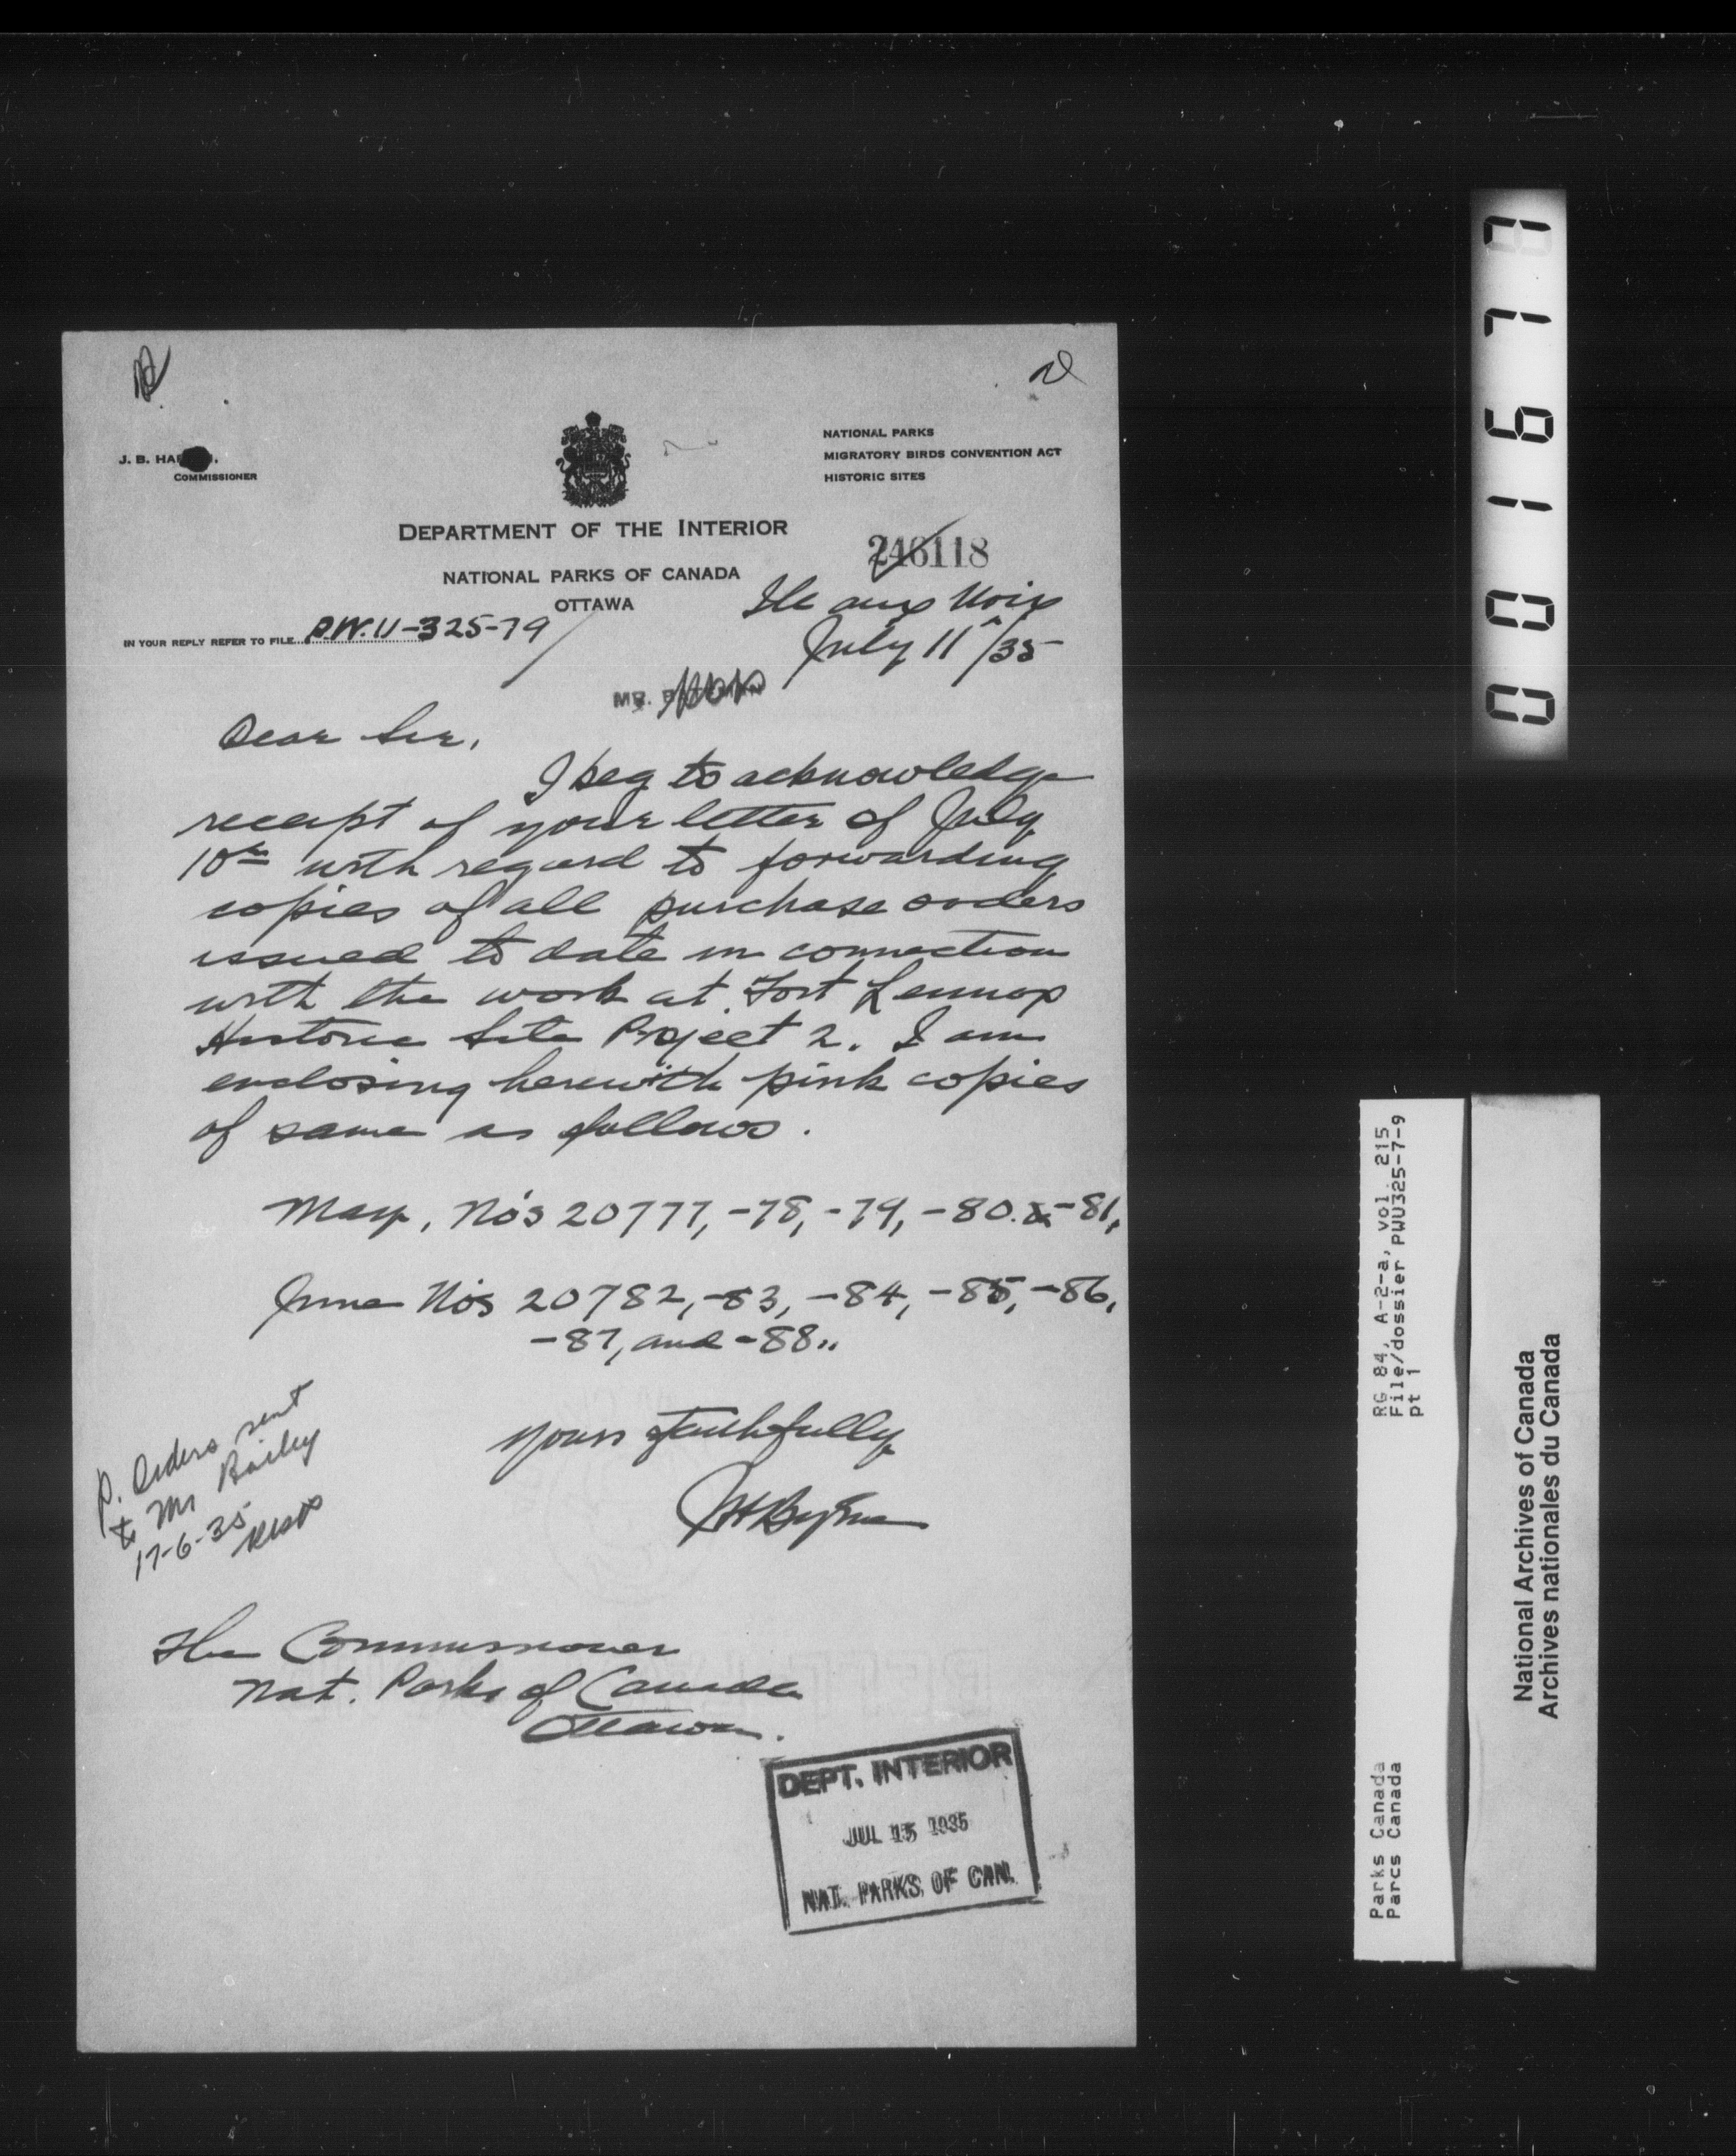 J. B. HA
COMMISSIONER
NATIONAL PARKS
MIGRATORY BIRDS CONVENTION ACT
HISTORIC SITES
DEPARTMENT OF THE INTERIOR
NATIONAL PARKS OF CANADA
OTTAWA
246118
IN YOUR REPLY REFER TO FILE P.W.U-325-79
Ile aux Noix
July 11/35
MR.
Dear Sir,
I beg to acknowledge
receipt of your letter of July
10th with regard to forwarding
copies of all purchase orders
issued to date in connection
with the work at Fort Lennox
Historic Site Project 2. I am
enclosing herewith pink copies
of same as follows.
May, No's 20777, -78, -79, -80. & -81,
June No's 20782, -83, -84, -85, -86,
-87, and -88..
Yours faithfully
P. Orders sent
to Mr Bailey
17-6-35
The Commissioner
Nat. Parks of Canada
Ottawa.
DEPT. INTERIOR
JUL 15 1935
NAT. PARKS OF CAN.
001677
RG 84, A-2-a, vol. 215
File/dossier PWU325-7-9
pt 1
Parks Canada
Parcs Canada
National Archives of Canada
Archives nationales du Canada